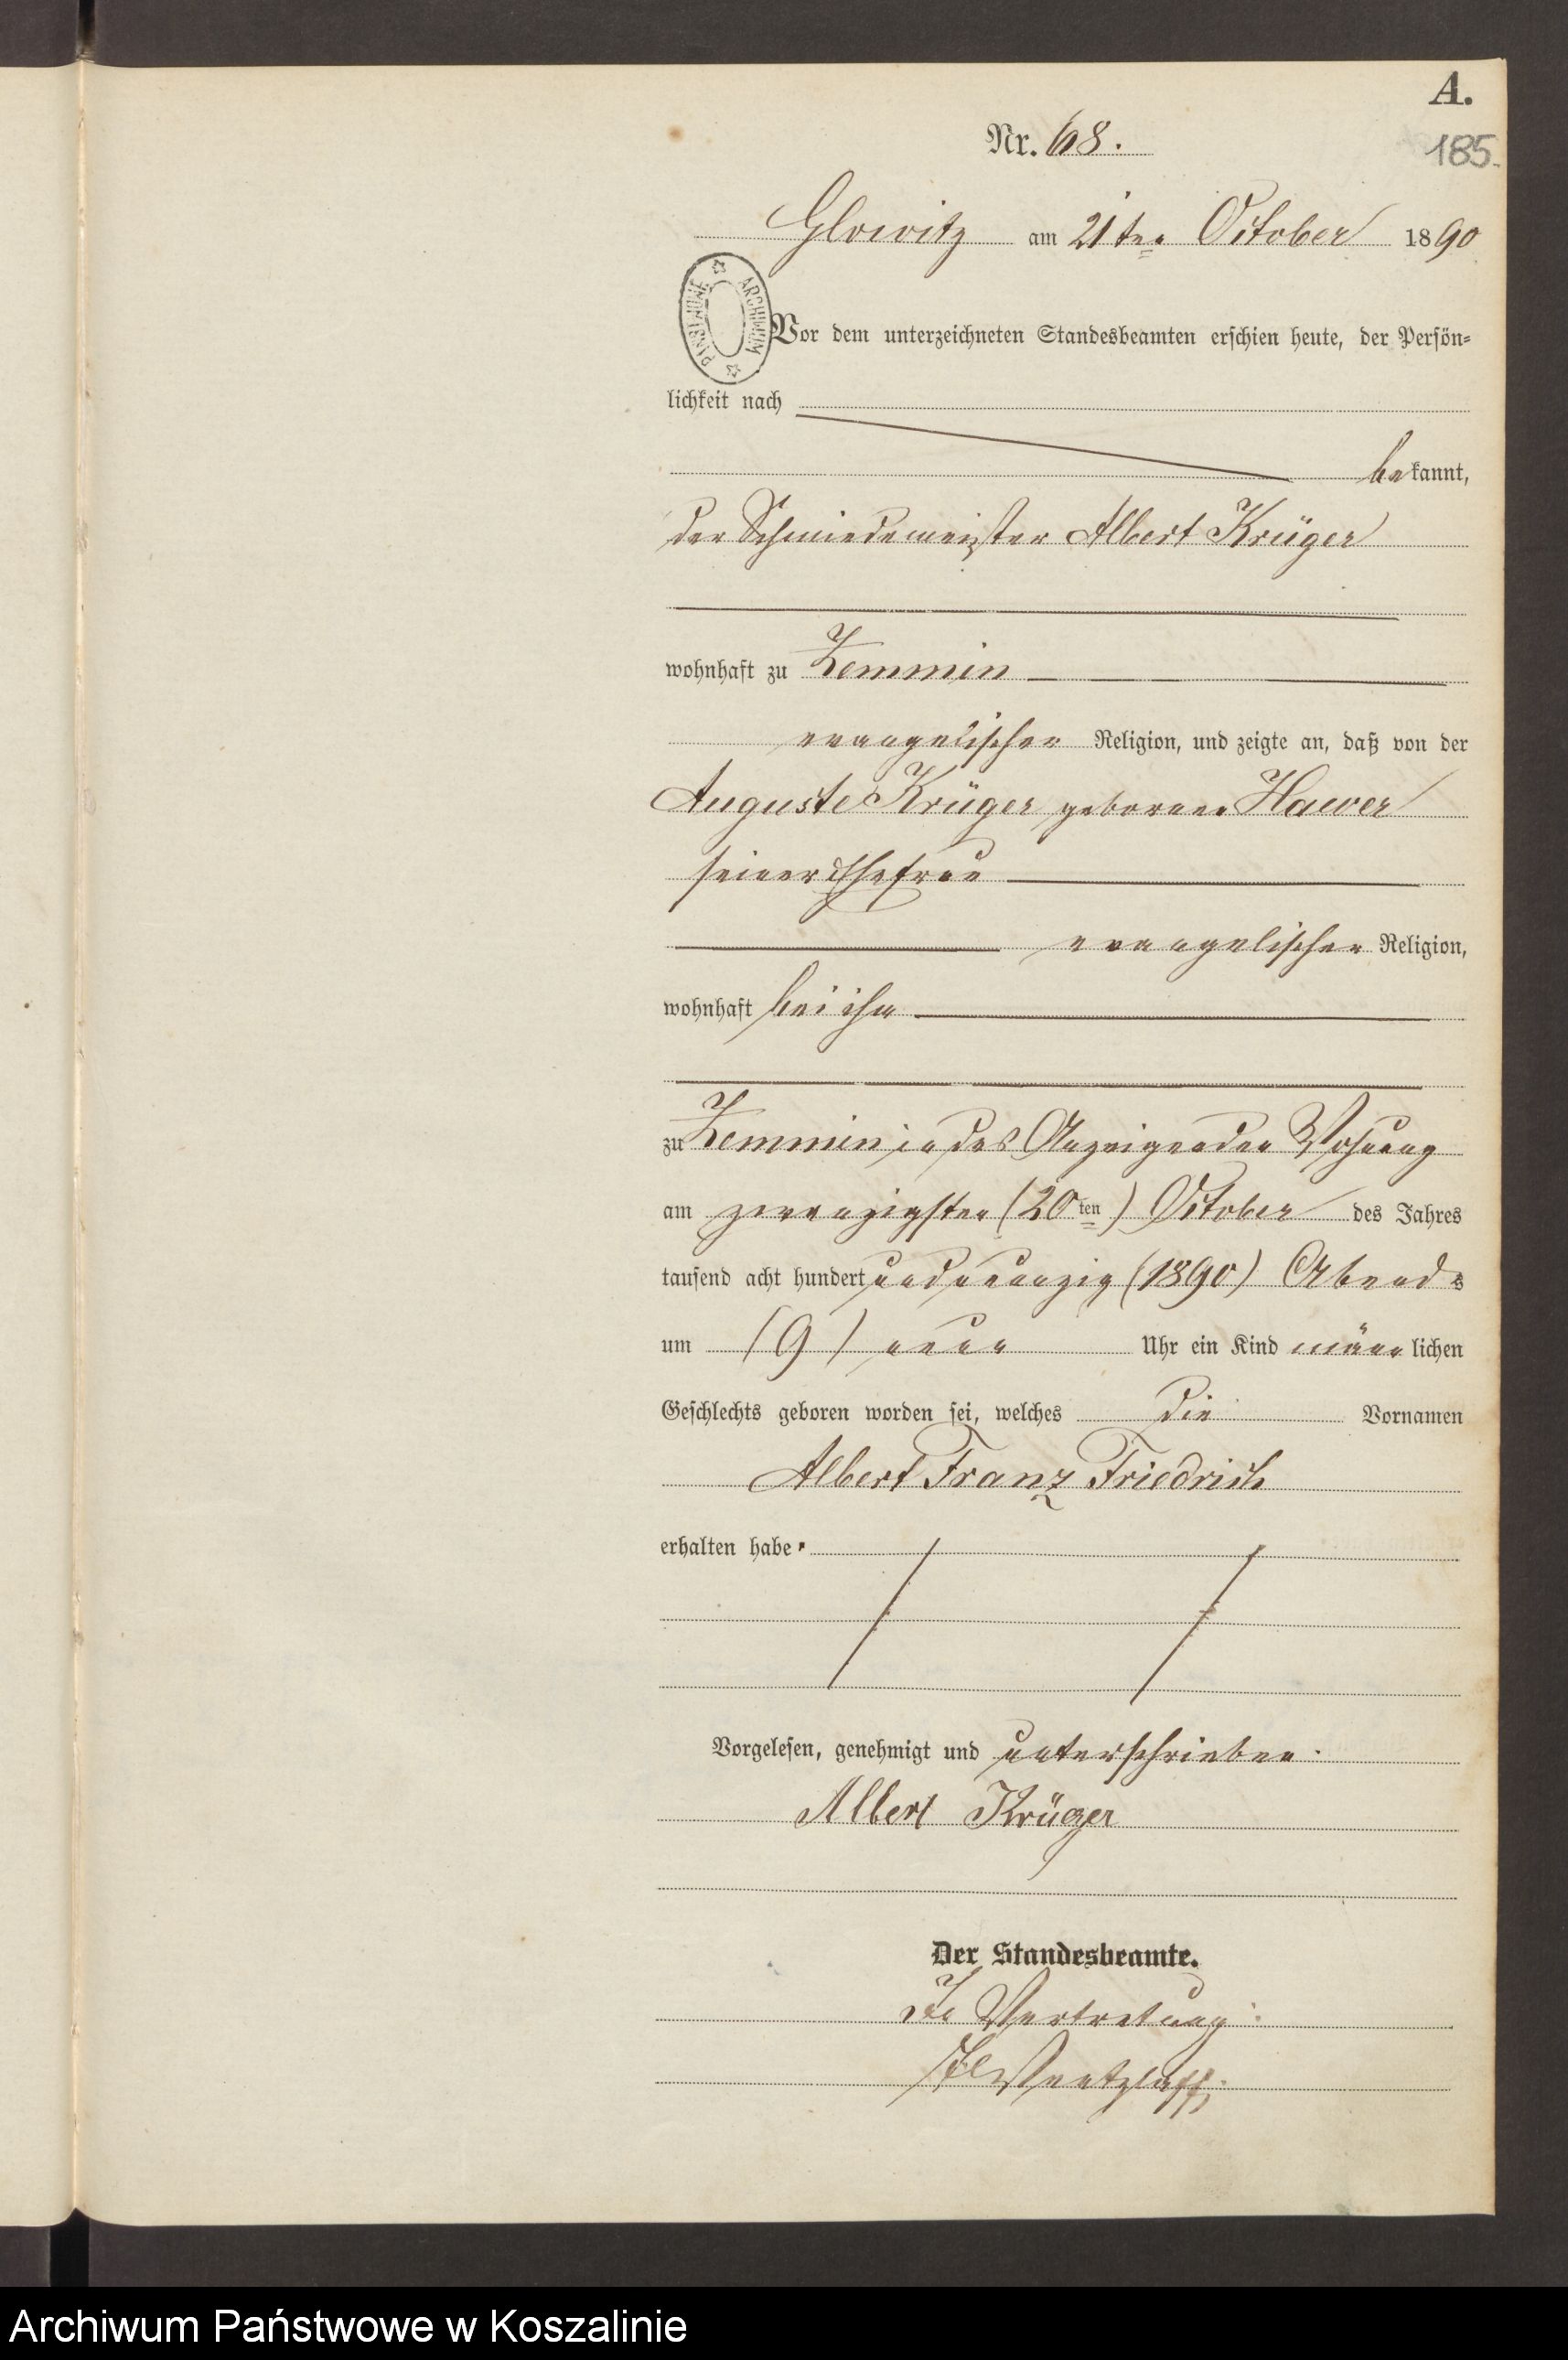 A.
Nr. 68.
185.
Glowitz am 21ten October 1890
ARCHIWUM PAŃSTWOWE
Vor dem unterzeichneten Standesbeamten erschien heute, der Persön-
lichkeit nach
bekannt,
der Schmiedemeister Albert Krüger
wohnhaft zu Zemmin
evangelischer Religion, und zeigte an, daß von der
Auguste Krüger geborenen Hawer
seiner Ehefrau
evangelischer Religion,
wohnhaft bei ihm
zu Zemmin in des Anzeigenden Wohnung
am zwanzigsten (20ten) October des Jahres
tausend acht hundert und neunzig (1890) Abends
um (9) neun Uhr ein Kind männlichen
Geschlechts geboren worden sei, welches die Vornamen
Albert Franz Friedrich
erhalten habe.
Vorgelesen, genehmigt und unterschrieben.
Albert Krüger
Der Standesbeamte.
In Vertretung:
Archiwum Państwowe w Koszalinie